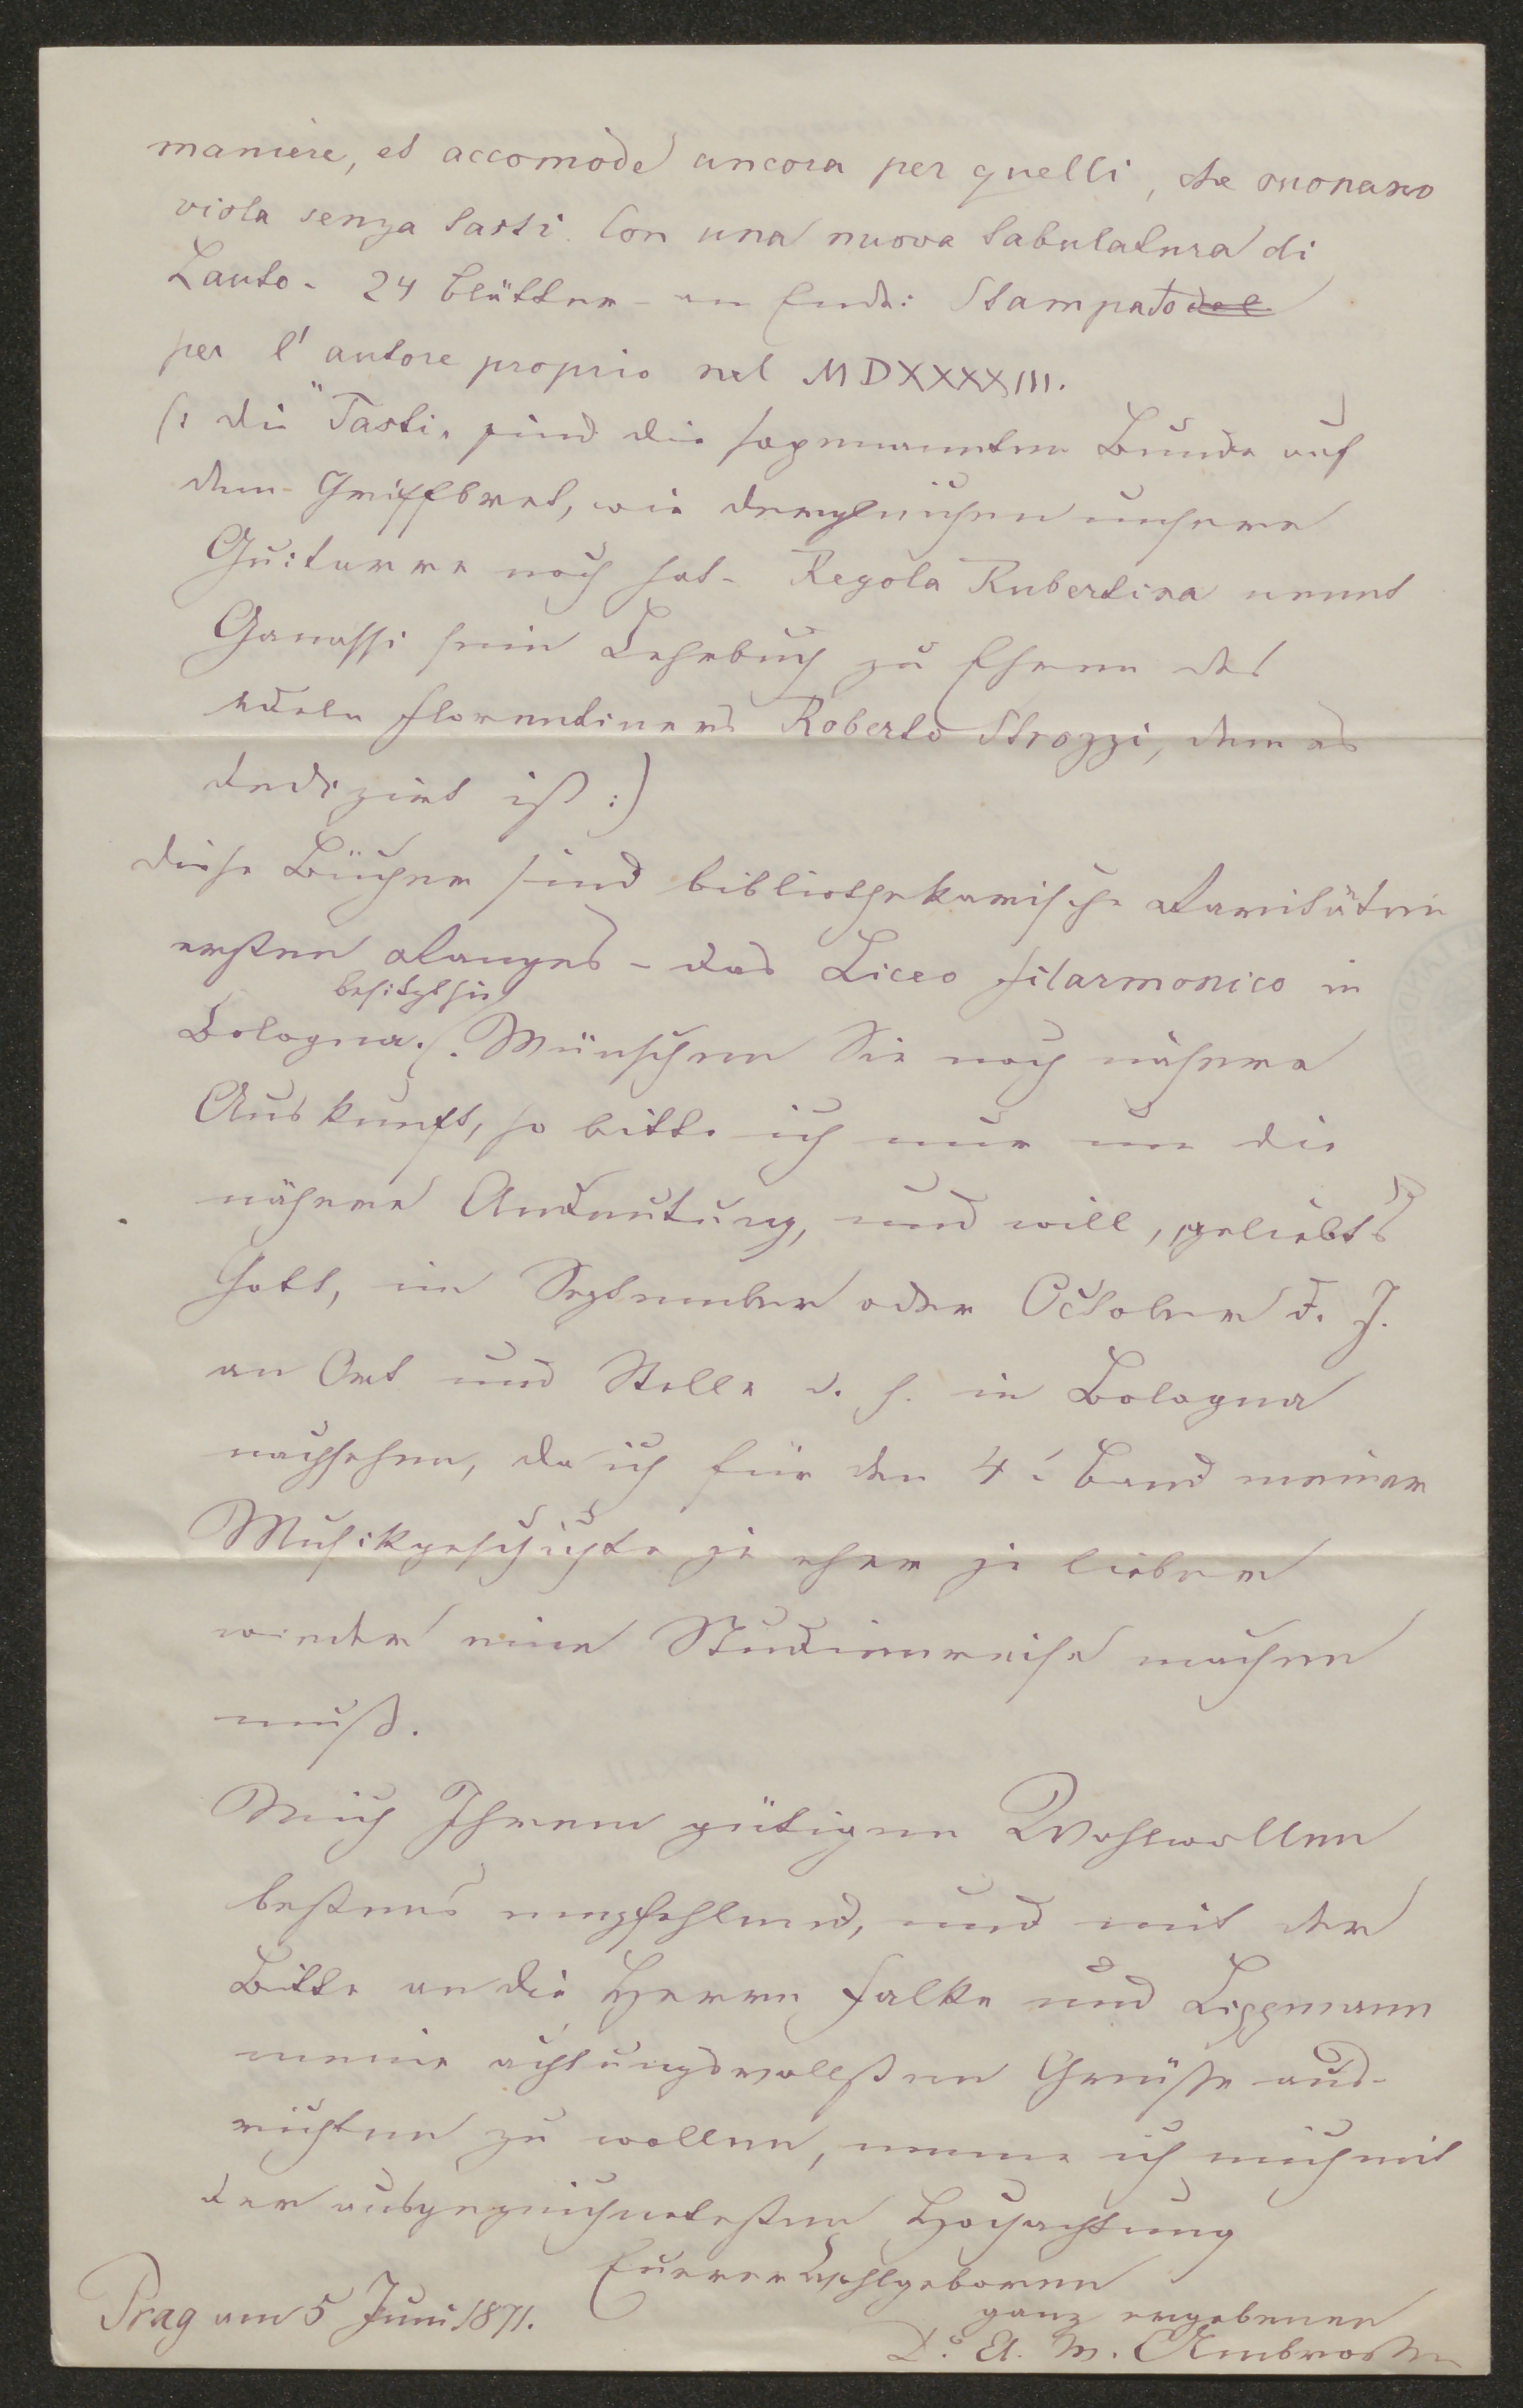 maniere, et accomode ancora per quelli, che suonano
viola senza tasti. Con una nuova tabulatura di
Lauto. 24 Blätter – am Ende: Stampato del
per l'autore proprio nel MDXXXXIII.
(: die "Tasti" sind die sogenannten Bunde auf
dem Griffbret, wie dergleichen unsere
Guitarre noch hat – Regola Rubertina nennt
Ganassi sein Lehrbuch zu Ehren des
edeln Florentiners Roberto Strozzi, dem es
dedizirt ist :)
diese Bücher sind bibliothekarische Raritäten
ersten Ranges – das Liceo filarmonico in
besitzt sie
Bologna. Wünschen Sie noch nähere
Auskunft, so bitte ich nur um die
nähere Andeutung, und will, geliebts
Gott, im September oder October d. J.
an Ort und Stelle d. h. in Bologna
nachsehen, da ich für den 4. Band meiner
Musikgeschichte je eher je lieber
wieder eine Studienreise machen
muß.
Mich Ihrem gütigen Wohlwollen
bestens empfehlend, und mit der
Bitte an die Herrn Falke und Lippmann
meine achtungsvollsten Grüsse aus-
richten zu wollen, nenne ich mich mit
der ausgezeichnetesten Hochachtung
Euerer Wohlgeboren
ganz ergebener
Prag am 5 Juni 1871.
Dr. A. W. Ambros